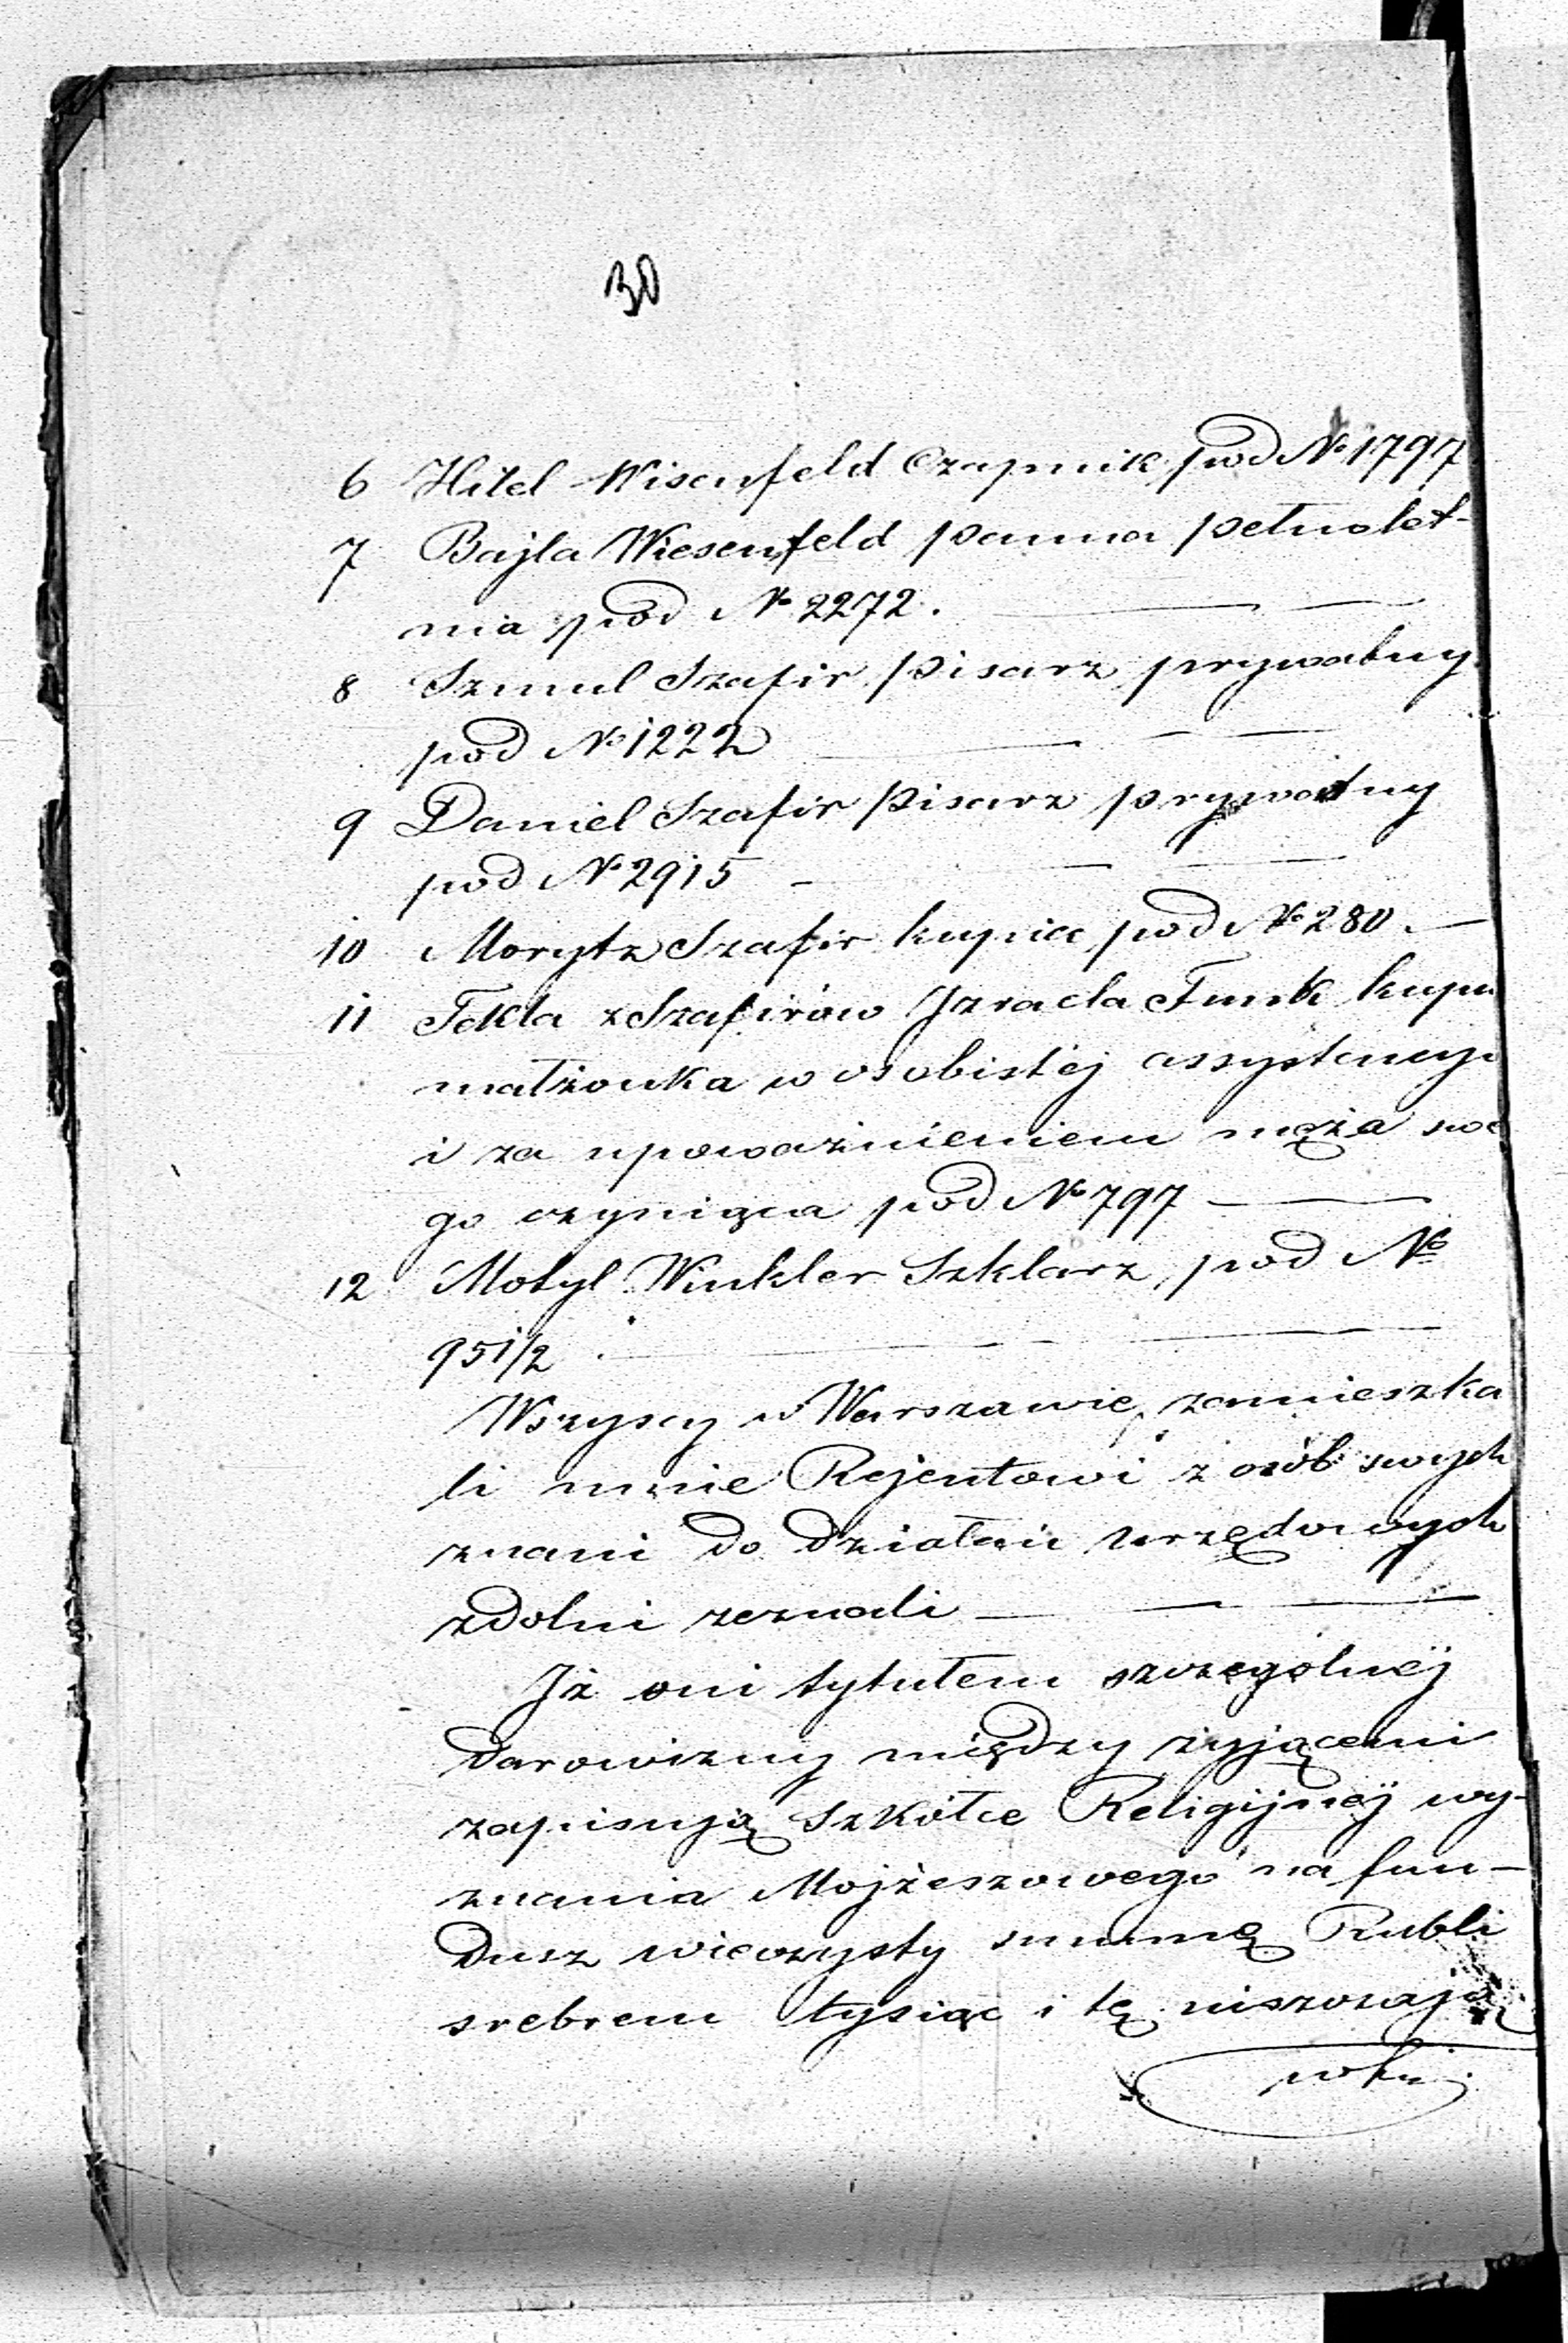 30
6 Hilel Wisenfeld Czapnik pod № 1797
7 Bajla Wiesenfeld panna pełnolet-
nia pod № 2272.
8 Szmul Szafir pisarz prywatny
pod № 1222
9 Daniel Szafir pisarz prywatny
pod № 2915
10 Morytz Szafir kupiec pod № 280.
11 Tekla z Szafirów Izraela Funk kupca
małżonka w osobistéj assystencyi
i za upoważnieniem męża swe
go czyniąca pod № 797
12 Motyl Winkler Szklarz pod №
951/2
Wszyscy w Warszawie zamieszka
li mnie Rejentowi z osób swych
znani do działań urzędowych
zdolni zeznali
Iż oni tytułem szczególnéj
darowizny między żyjącemi
zapisują Szkółce Religijnéj wy-
znania Mojżeszowego na fun-
dusz wieczysty summę Rubli
srebrem tysiąc i tę uiszczają